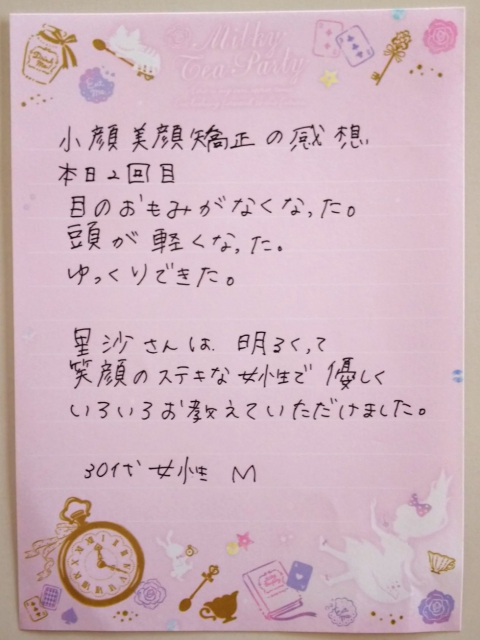 Milky
Tea Party
小顔美顔矯正の感想
本日2回目
目のおもみがなくなった。
頭が軽くなった。
ゆっくりできた。
里沙さんは明るくって
笑顔のステキな女性で優しく
いろいろお教えていただけました。
30代女性 M